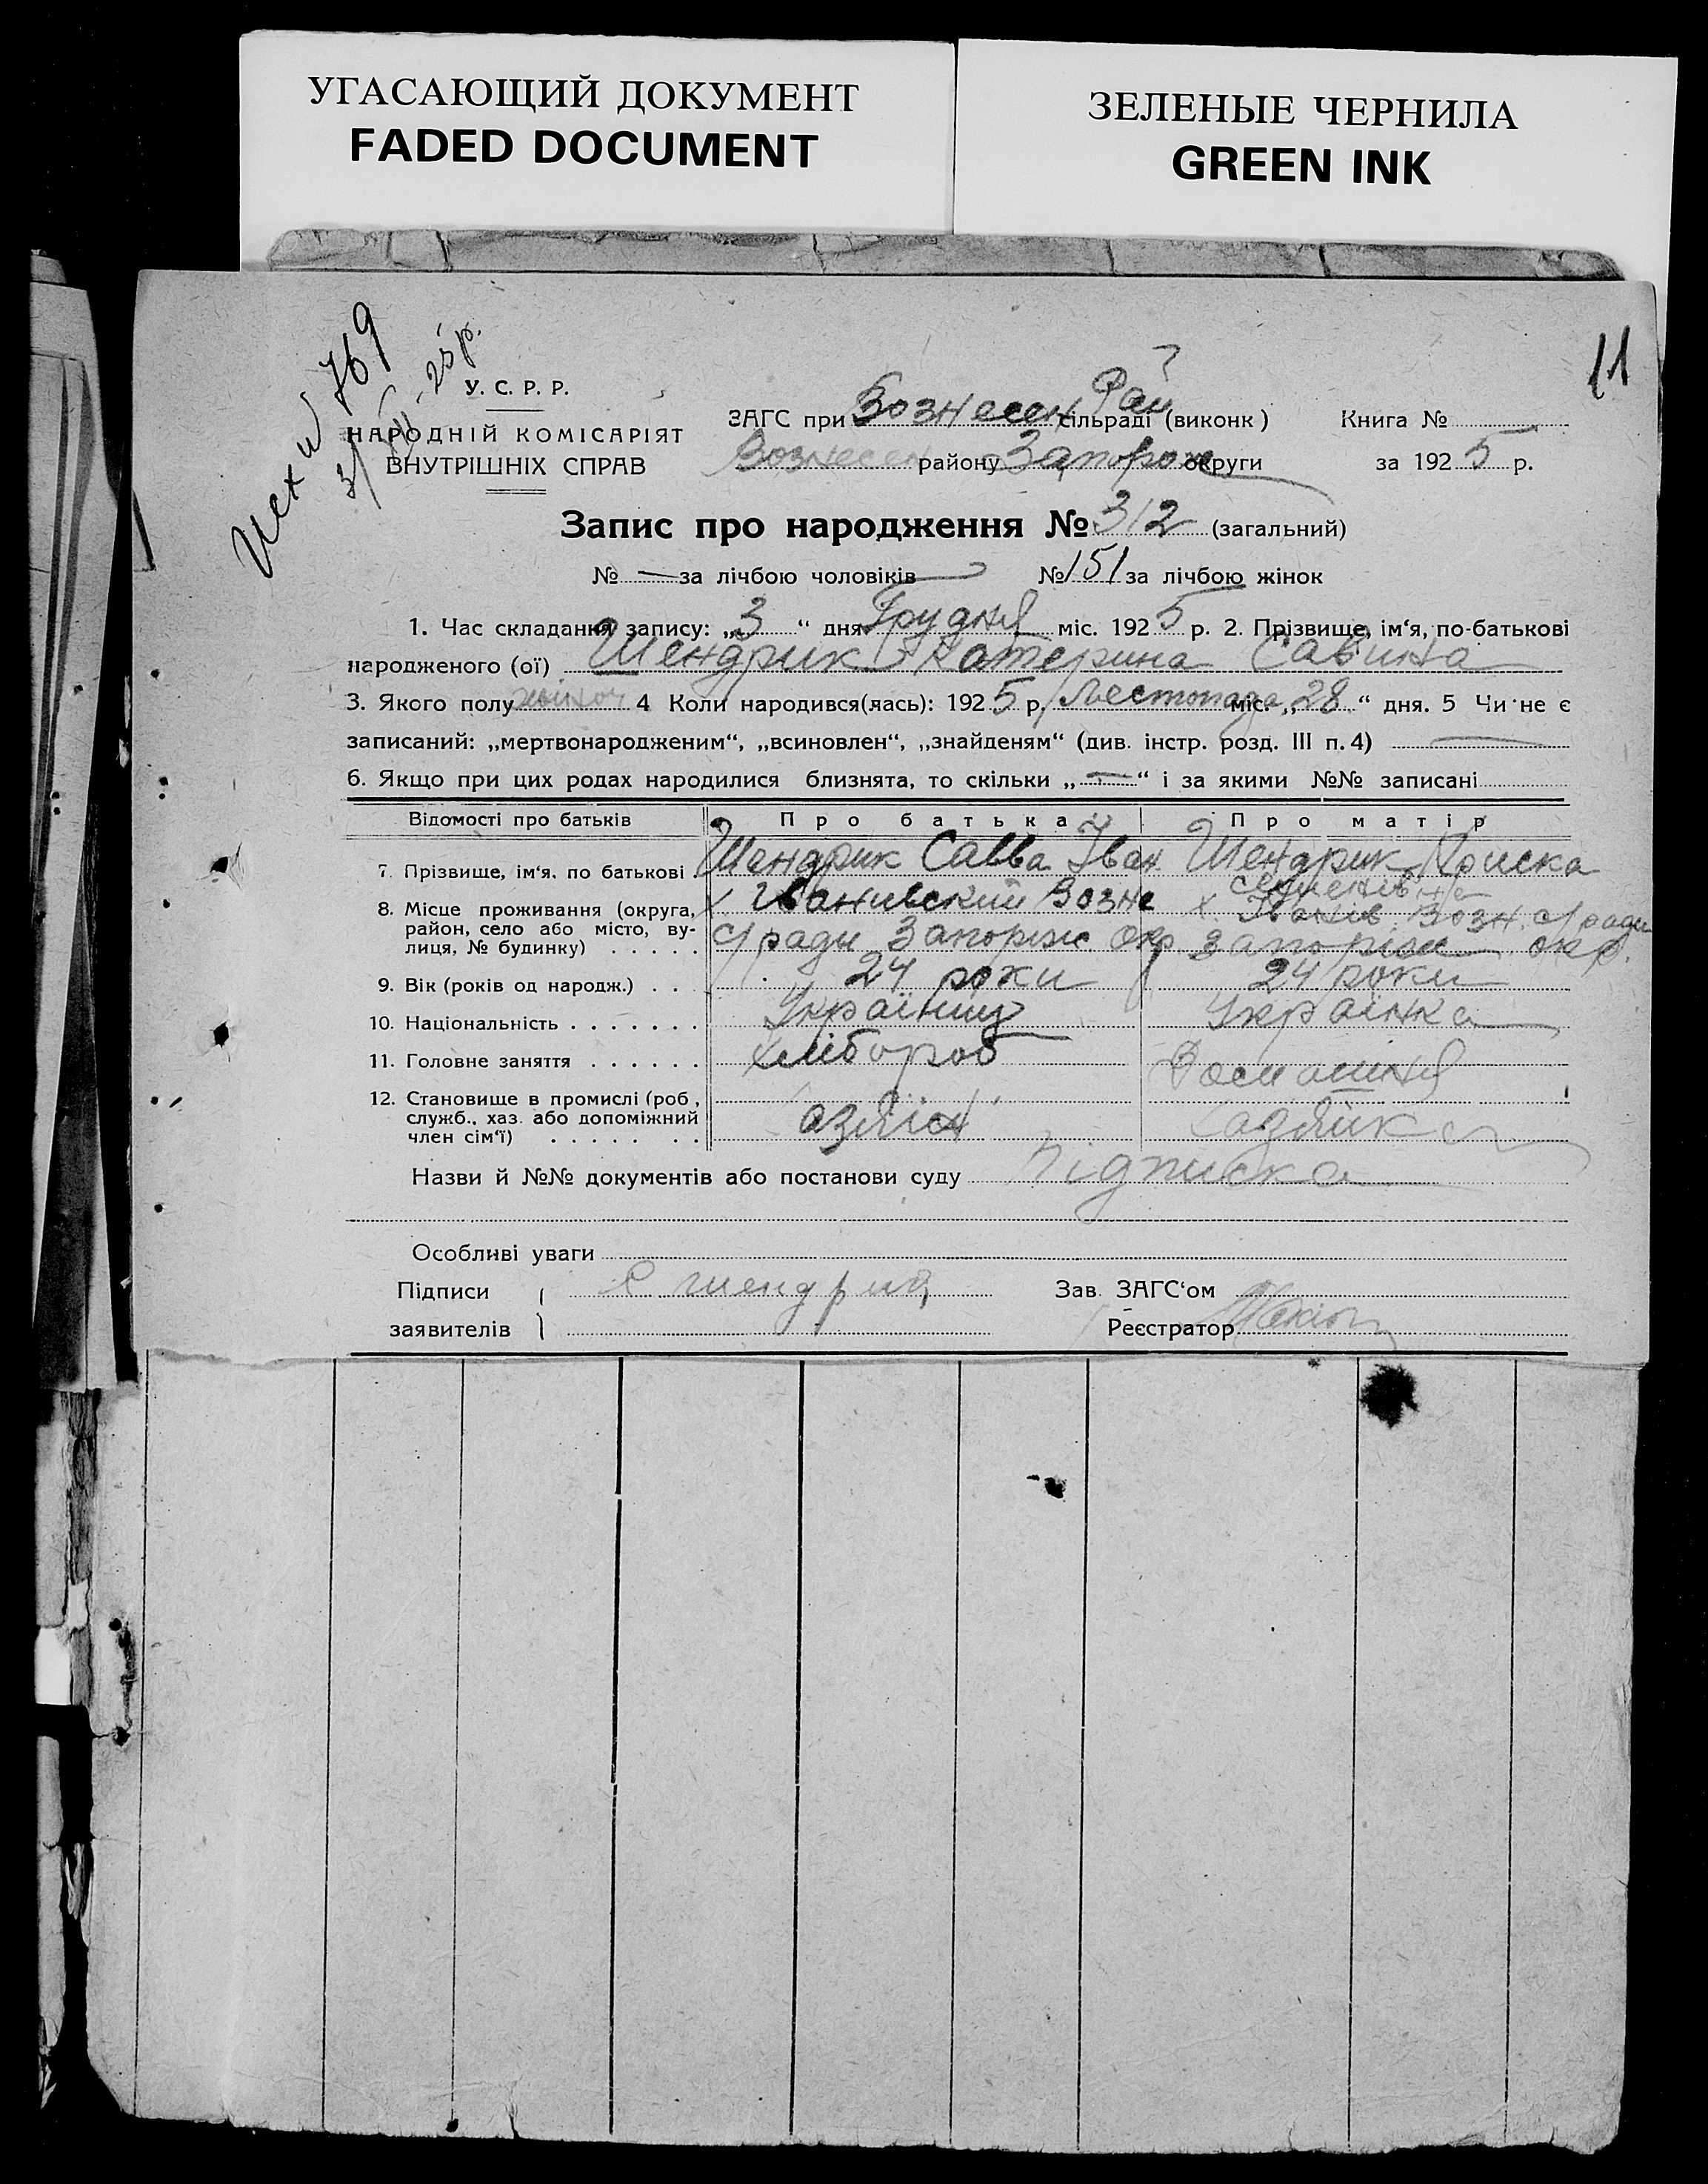 УГАСАЮЩИЙ ДОКУМЕНТ
FADED DOCUMENT
ЗЕЛЕНЫЕ ЧЕРНИЛА
GREEN INK
Исх № 769
3/XII-25 р.
11
У. С. Р. Р.
НАРОДНІЙ КОМІСАРІЯТ
ВНУТРІШНІХ СПРАВ
ЗАГС при Вознесен Рай сільраді (виконк) Книга №
Вознесен району Запорож округи за 1925 р.
Запис про народження № 312 (загальний)
№ — за лічбою чоловіків № 151 за лічбою жінок
1. Час складання запису: „3“ дня Грудня міс. 1925 р. 2. Прізвище, ім‘я, по-батькові
народженого (ої) Шендрик Катерина Савина
3. Якого полу жіноч 4 Коли народився(лась): 1925 р. Листопада міс. „28“ дня. 5 Чи не є
записаний: „мертвонародженим“, „всиновлен“, „знайденям“ (див. інстр. розд. III п. 4) —
6. Якщо при цих родах народилися близнята, то скільки „—“ і за якими №№ записані
Відомості про батьків Про батька Про матір
7. Прізвище, ім‘я, по батькові Шендрик Савва Іван. Шендрик
8. Місце проживання (округа, район, село або місто, вулиця, № будинку) х Іванивский Возне
с/ради Запоріж Окр х. Іванів. Возн. с/ради
Запоріж окр.
9. Вік (років од народж.) 24 роки 24 роки
10. Національність Українец Українка
11. Головне заняття хлібороб
12. Становище в промислі (роб., служб., хаз. або допоміжний член сім‘ї) Хазяїн Хазяйка
Назви й №№ документів або постанови суду Підписка
Особливі уваги
Підписи шендрик Зав. ЗАГС‘ом
заявителів Реєстратор